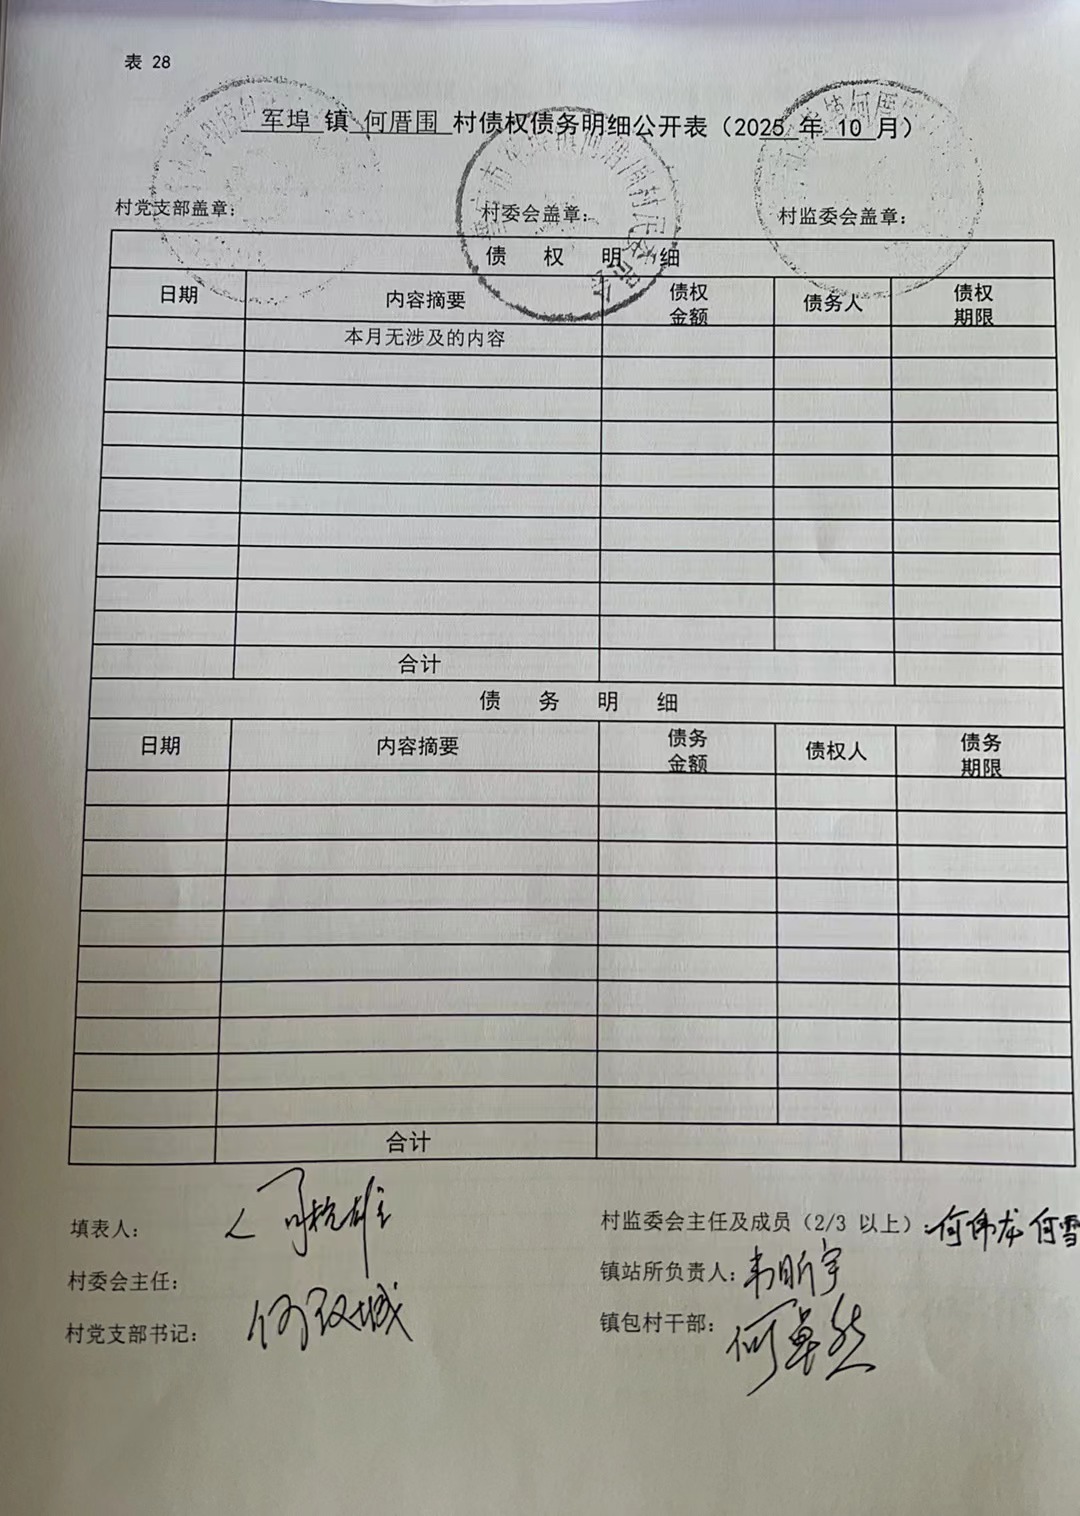 表 28
军埠 镇 何厝围 村债权债务明细公开表（2025 年 10 月）
村党支部盖章： 村委会盖章： 村监委会盖章：
债 权 明 细
日期 内容摘要 债权金额 债务人 债权期限
本月无涉及的内容
合计
债 务 明 细
日期 内容摘要 债务金额 债权人 债务期限
合计
填表人： 村监委会主任及成员（2/3 以上）：何伟龙 何雪
村委会主任： 镇站所负责人：
村党支部书记： 镇包村干部：何卓然